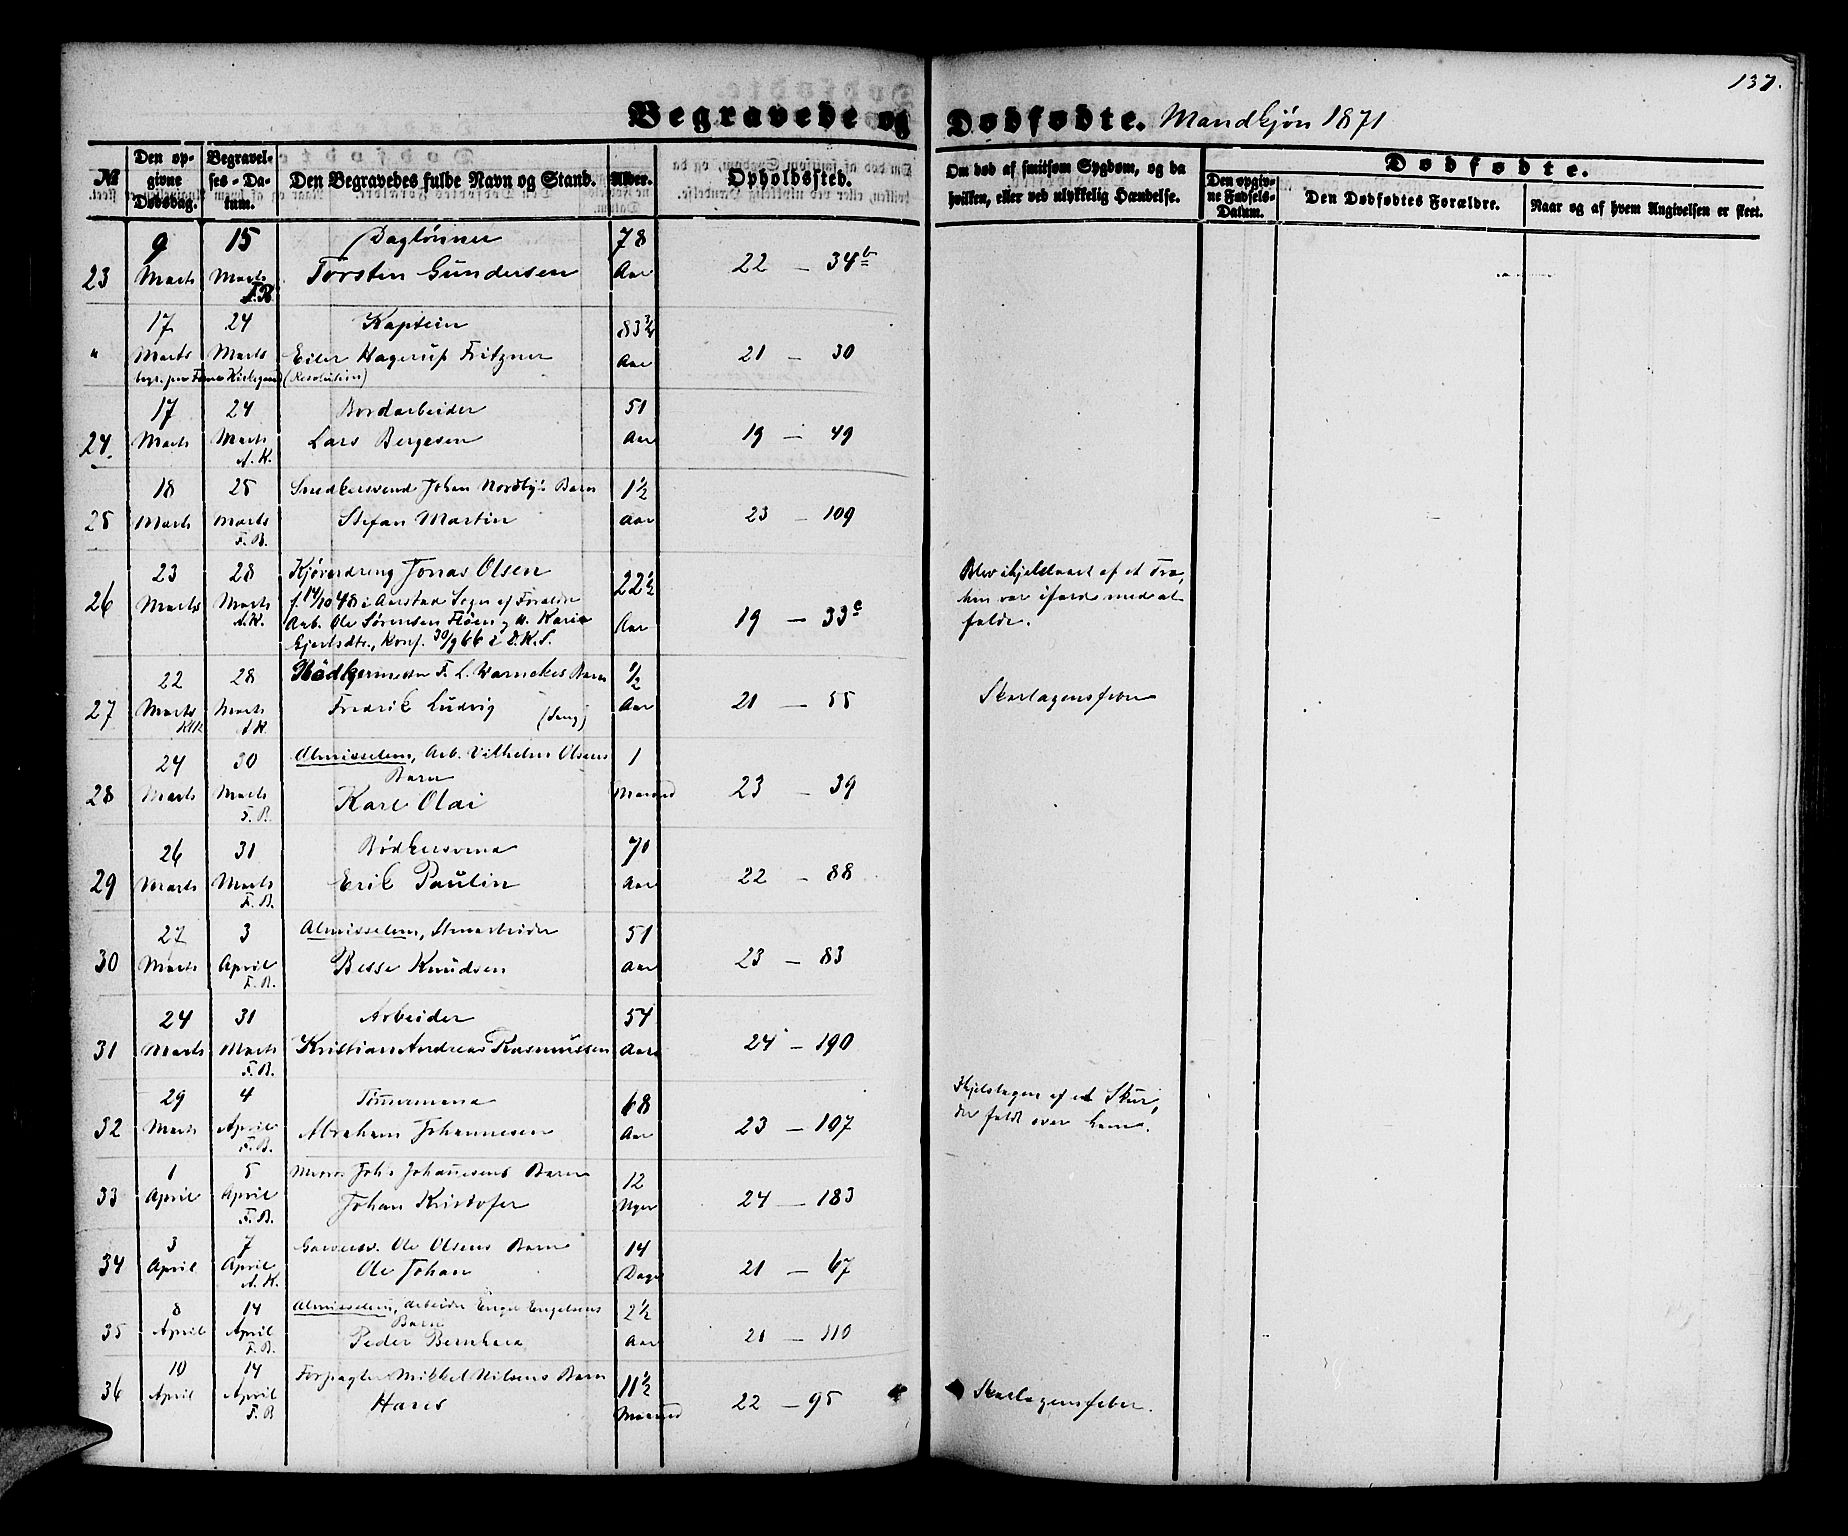 137.
Begravede og Dødfødte. Mandkjøn 1871
№ | Den opgivne Dødsdag. | Begravelses-Datum. | Den Begravedes fulde Navn og Stand. | Alder. | Opholdssted. | Om død af smitsom Sygdom, og da hvilken, eller ved ulykkelig Hændelse. | Dødfødte. | Den opgivne Fødsels-Datum. | Den Dødfødtes Forældre. | Naar og af hvem Angivelsen er skeet.
9 15 Daglönner 78
23 Marts Marts Torsten Gundersen Aar 22 — 34b
F.B.
17 24 Kaptein 83 3/4
" Marts Marts Eiler Hagerup Fritzner Aar 21 — 30
(Resolution)
17 24 Bordarbeider 51
24. Marts Marts Lars Bergesen Aar 19 — 49
A.K.
18 25 Snedkersvend Johan Nordby's Barn 1 1/2
25 Marts Marts Stefan Martin Aar 23 — 109
F.B.
23 28 Kjøredreng Jonas Olsen 22 1/2 Blev ihjelslaaet af et Træ,
26 Marts Marts f. 14/10 48 i Aarstad Sogn af Forældre han var ifærd med at
A.K. Arb. Ole Sörensen og Karia Aar 19 — 33c fælde.
Gjertsdtr., konf. 30/9 66 i D.K.S.
22 28 Bödkermester F. L. Warnekes Barn 1/2
27 Marts Marts Fredrik Ludvig Aar 21 — 55 Skarlagensfeber
KlK A.K.
24 30 Almisselem, Arb. Vilhelm Olsens 1
Barn
28 Marts Marts Karl Olai Maaned 23 — 39
F.B.
26 31 Bødkersvend 70
29 Marts Marts Erik Paulin Aar 22 — 88
F.B.
27 3 Almisselem, Stenarbeider 51
30 Marts April Besse Knudsen Aar 23 — 83
F.B.
24 31 Arbeider 54
31 Marts Marts Kristian Andreas Rasmussen Aar 24 — 190
F.B.
29 4 Tømmermand 68 Ihjelslagen af et Skur,
32 Marts April Abraham Johannesen Aar 23 — 107 der faldt over ham.
F.B.
1 5 Murer Johs Johannesens Barn 12
33 April April Johan Kristofer Uger 24 — 183
F.B.
3 7 Garversv. Ole Olsens Barn 14
34 April April Ole Johan Dage 21 — 67
A.K.
8 14 Almisselem, Arbeider Engel Engelsens 2 1/2
Barn
35 April April Peder Bernhard Aar 21 — 110
F.B.
10 14 Forpagter Mikkel Nilsens Barn 11 1/2
36 April April Hans Maaned 22 — 95 Skarlagensfeber.
F.B